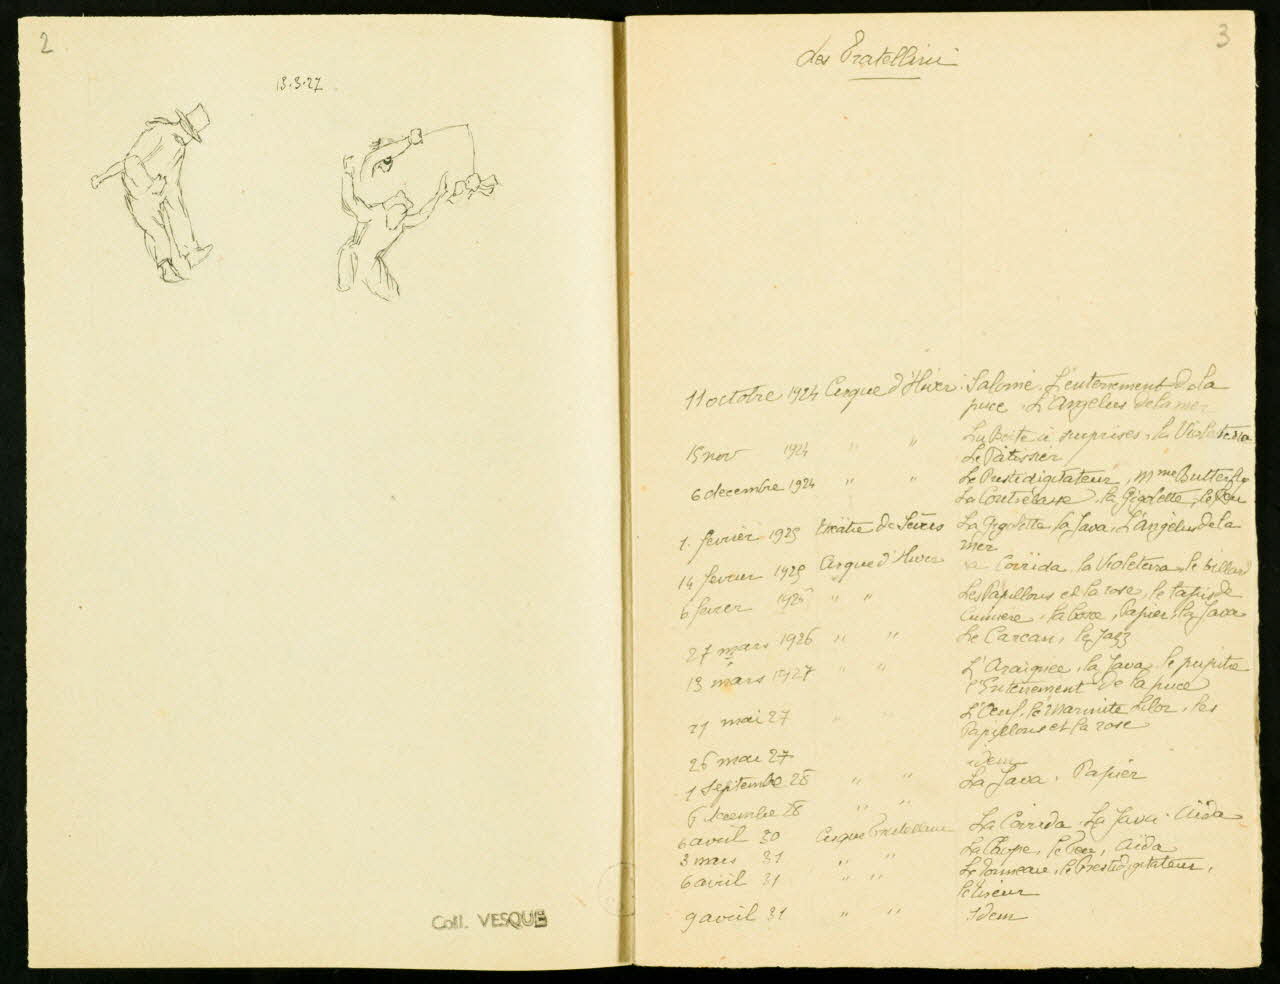 2
13.3.27
Coll. VESQUE
3
des Fratellini
11 octobre 1924 Cirque d'Hiver. Salomé. L'enterrement de la
puce. L'Angélus de la mer
La Boite à surprises, la Violetera
15 nov 1924 " " Le Pâtissier
6 decembre 1924 " " Le Prestidigitateur, Mme Butterfly
La Contrebasse, la Gigolette, le Feu
1. février 1925 théâtre de La Gigolette la Java, L'Angélus de la
mer
14 fevrier 1925 Cirque d'Hiver Corrida, la Violetera, le billard
6 fevrier 1926 " " Les Papillons et la rose, le tapis de
la boxe, Papier, la Java
27 mars 1926 " " Le Carcan, le Jazz
13 mars 1927 " " L'Araignée, la Java, le pupitre
l'Enterrement de la puce
21 mai 27 " " L'Oeuf, la Marmite, les
Papillons et la rose
26 mai 27 idem
1 Septembre 28 " " La Java. Papier
6 decembre 28 " "
6 avril 30 Cirque Fratellini La Corrida. La Java. Aïda
3 mars 31 " " La Coupe, le Feu, Aïda
6 avril 31 " " Le Tonneau, le Prestidigitateur,
le tireur
9 avril 31 " " Idem